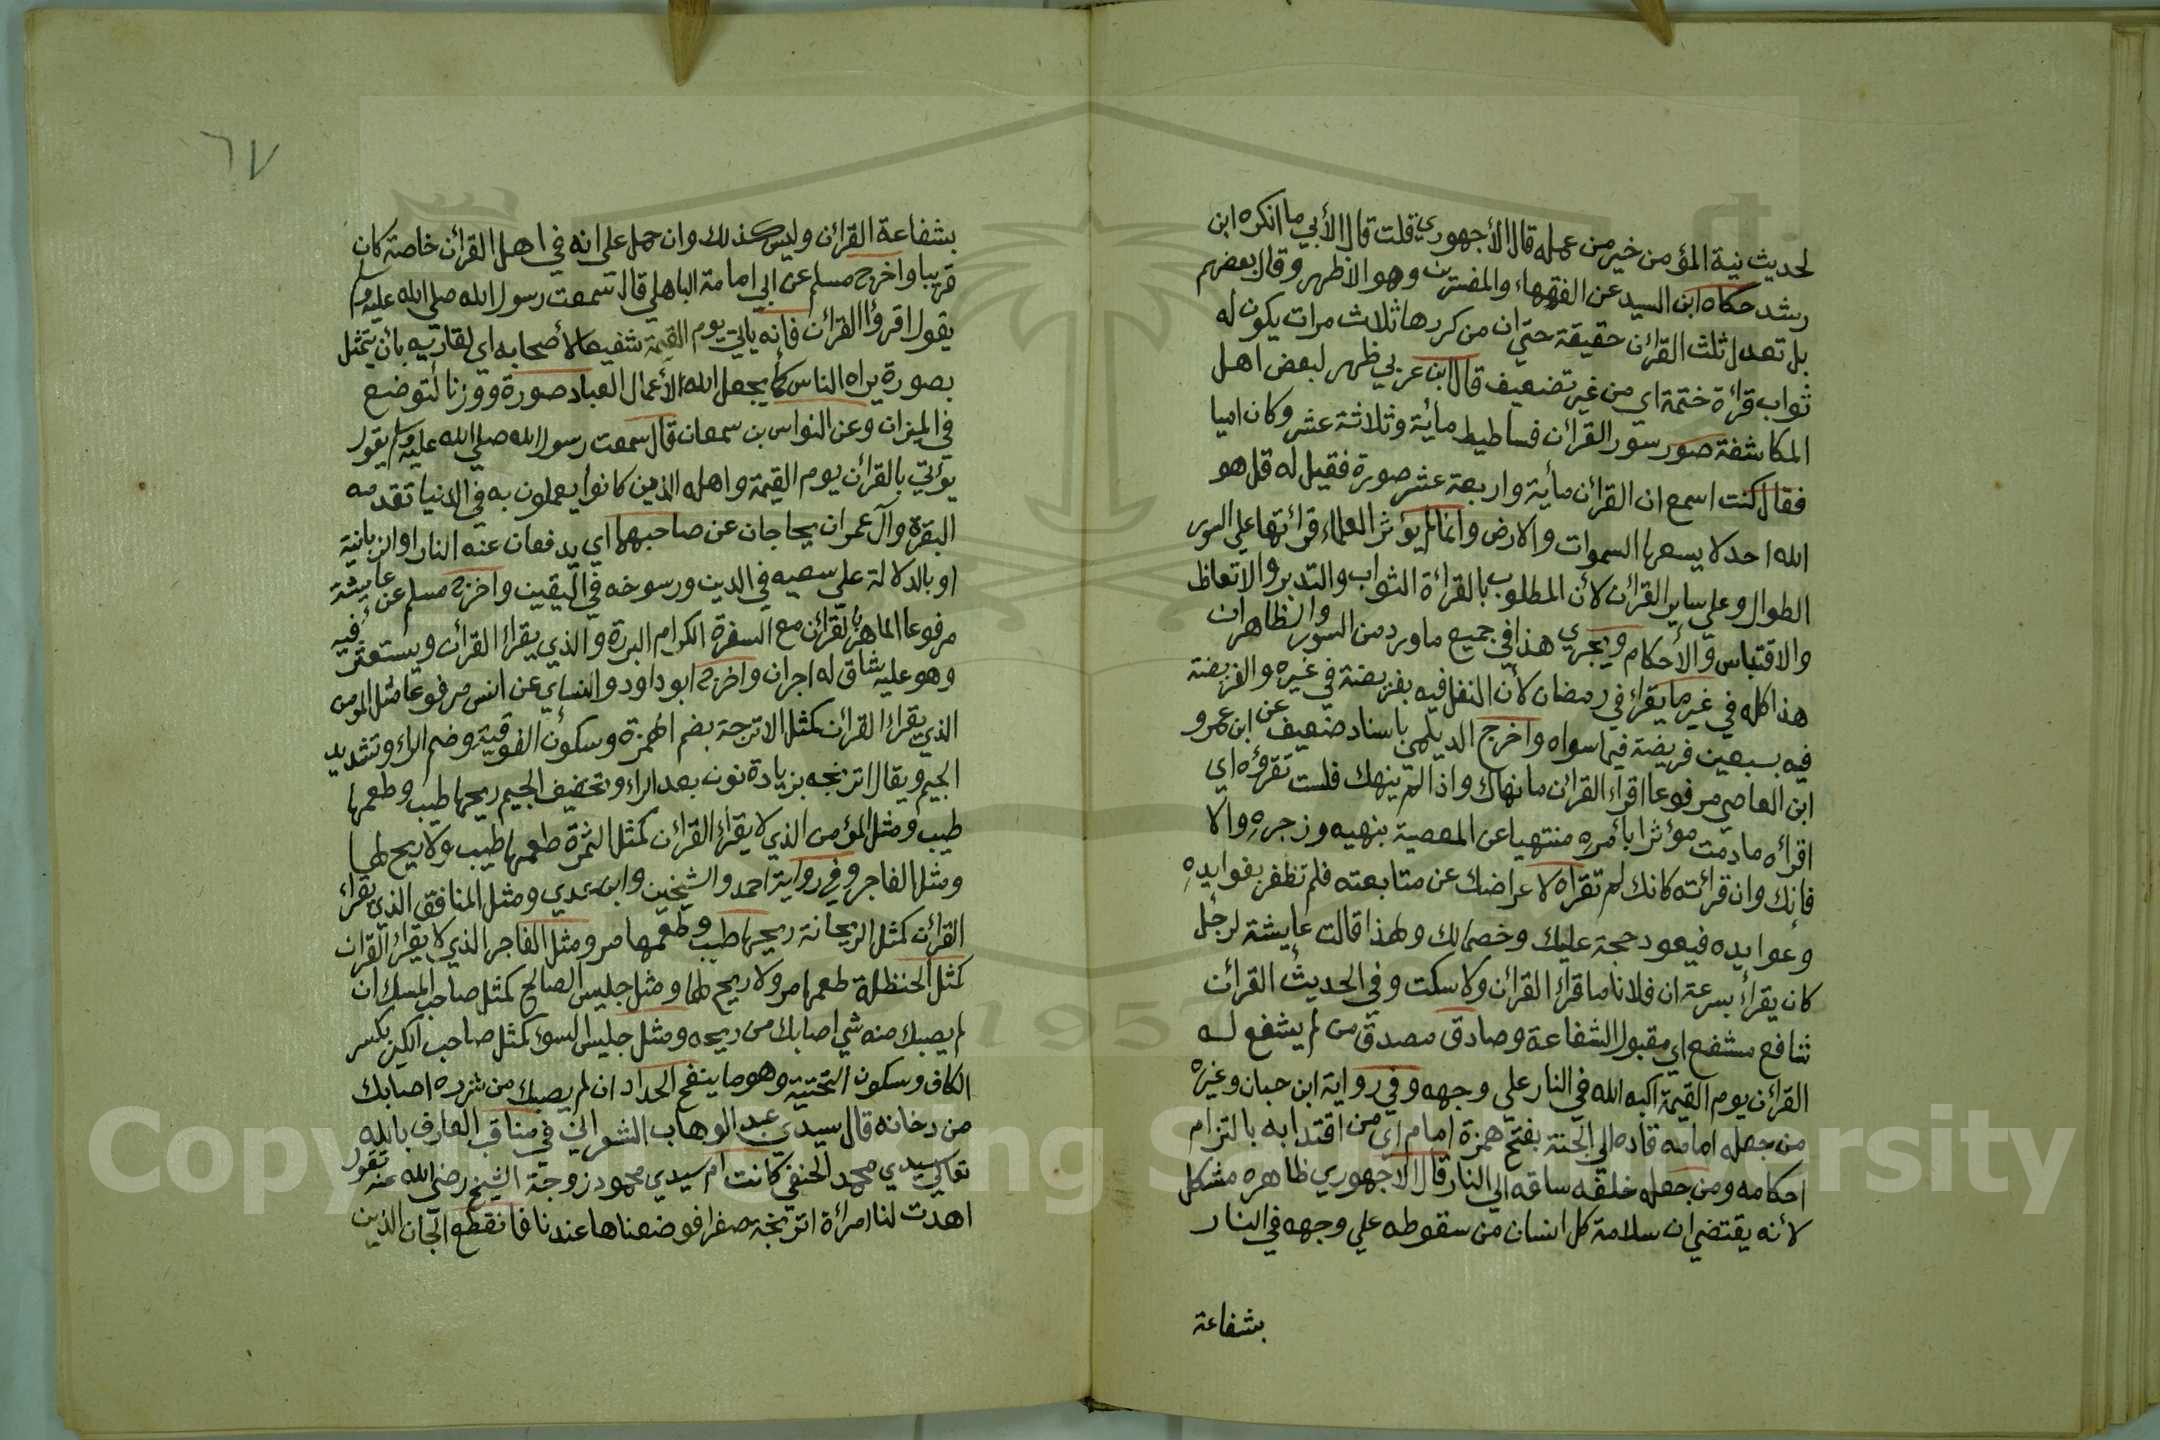 لحديث نية المؤمن خير من عمله قال الأجهوري قلت قال الأبي ما انكره ابن
رشد حكاه ابن السيد عن الفقهاء والمفسرين وهو الاظهر وقال بعضهم
بل تعدل ثلث القرائن حقيقة حتي ان من كررها ثلاث مرات يكون له
ثواب قرائة ختمة اي من غير تضعيف قال ابن عربي ظهر لبعض اهل
المكاشفة صور سور القرائن فساطيط مائية وثلاثة عشر وكان اميا
فقال كنت اسمع ان القرائن مأية واربعة عشر صورة فقيل له قل هو
الله احد لا يسعها السموات والارض وانما لم يؤثر العلماء قرائتها علي السور
الطوال وعلي ساير القرائن لأن المطلوب بالقرائة الثواب والتدبر والاتعاظ
والاقتباس والأحكام ويجري هذا في جميع ما ورد من السور والظاهر ان
هذا كله في غير ما يقراء في رمضان لأن النفل فيه بفريضة في غيره والفريضة
فيه بسبعين فريضة فيما سواه واخرج الديلمي باسناد ضعيف عن ابن عمرو
ابن العاصي مرفوعا اقراء القرائن ما نهاك واذا لم ينهك فلست تقرؤه اي
اقرائه ما دمت مؤثرا بأمره منتهيا عن المعصية بنهيه وزجره والا
فانك وان قرائته كانك لم تقراه لاعراضك عن متابعته فلم تظفر بفوايده
وعوايده فيعود حجة عليك وخصمالك ولهذا قالت عايشة لرجل
كان يقراء بسرعة ان فلانا ما قراء القرائن ولا سكت وفي الحديث القرائن
شافع مشفع اي مقبول الشفاعة وصادق مصدق من لم يشفع له
القرائن يوم القيمة اكبه الله في النار علي وجهه وفي رواية ابن حبان وغيره
من جعله امامه قاده الي الجنة بفتح همزة امام اي من اقتدا به بالتزام
احكامه ومن جعله خلفه ساقه الي النار قال الاجهوري ظاهره مشكل
لأنه يقتضي ان سلامة كل انسان من سقوطه علي وجهه في النار
بشفاعة
٦٧
بشفاعة القرائن وليس كذلك وان حمل علي انه في اهل القرائن خاصة كان
قريبا واخرج مسلم عن ابي امامة الباهلي قال سمعت رسول الله صلي الله عليه وسلم
يقول اقرؤا القرائن فانه يأتي يوم القيمة شفيعا لأصحابه اي لقاريه بأن يتمثل
بصورة يراه الناس كما يجعل الله لأعمال العباد صورة ووزنا لتوضع
في الميزان وعن النواس بن سمعان قال سمعت رسول الله صلي الله عليه وسلم يقول
يؤتي بالقرائن يوم القيمة واهله الذين كانوا يعملون به في الدنيا تقدمه
البقرة وآل عمران يحاجان عن صاحبهما اي يدفعان عنه النار او الزبانية
او بالدلالة علي سعيه في الدين ورسوخه في اليقين واخرج مسلم عن عايشة
مرفوعا الماهر بالقرائن مع السفرة الكرام البررة والذي يقراء القرائن ويتتعتع فيه
وهو عليه شاق له اجران واخرج ابو داود والنساي عن انس مرفوعا مثل المومن
الذي يقراء القرائن كمثل الاترجة بضم الهمزة وسكون الفوقية وضم الراء وتشديد
الجيم ويقال اترنجه بزيادة نون بعد الراء وتخفيف الجيم ريحها طيب وطعمها
طيب ومثل المؤمن الذي لا يقراء القرائن كمثل التمرة طعمها طيب ولا ريح لها
ومثل الفاجر وفي رواية احمد والشيخين وابن عدي ومثل المنافق الذي يقراء
القرائن كمثل الريحانة ريحها طيب وطعمها مر ومثل الفاجر الذي لا يقراء القران
كمثل الحنظلة طعمها مر ولا ريح لها ومثل جليس الصالح كمثل صاحب المسك ان
لم يصبك منه شي اصابك من ريحه ومثل جليس السوء كمثل صاحب الكير بكسر
الكاف وسكون التحتية وهو ما ينفخ الحداد ان لم يصبك من شرره اصابك
من دخانه قال سيدي عبد الوهاب الشعراني في مناقب العارف بالله
تعالي سيدي محمد الحنفي كانت ام سيدي محمود زوجة الشيخ رضي الله عنه تقول
اهدت لنا امرائة اترنجة صفرا فوضعناها عندنا فانقطع الجان الذين
Copyright © King Saud University
1957